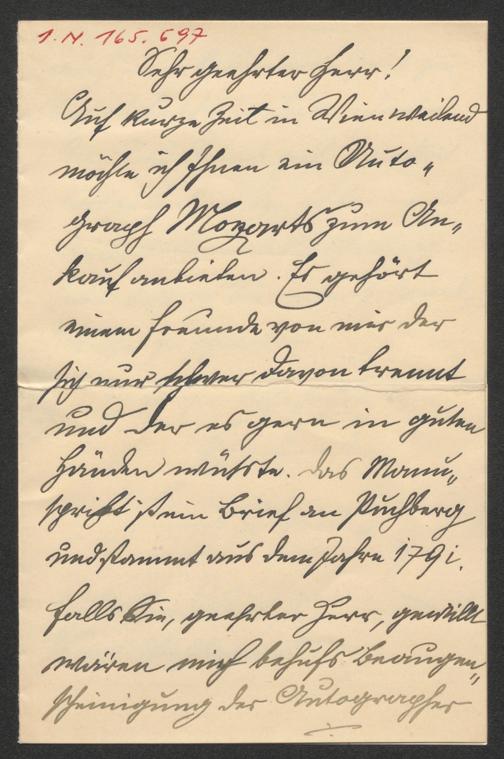 I. N. 165.697
Sehr geehrter Herr!
Auf kurze Zeit in Wien weilend
möchte ich Ihnen ein Auto„
graph Mozarts zum An„
kauf anbieten. Es gehört
einem Freunde von mir der
sich nur schwer davon trennt
und der es gern in guten
Händen wüsste. Das Manu„
skript ist ein Brief an Puchberg
und stammt aus dem Jahre 1791.
Falls Sie, geehrter Herr, gewillt
wären mich behufs Beaugen„
scheinigung des Autographes